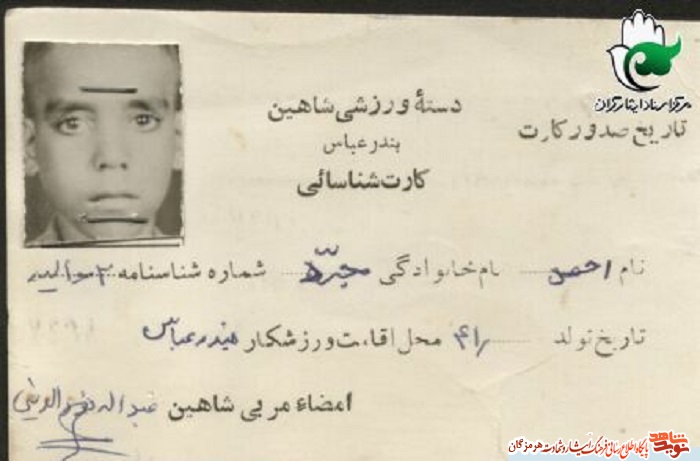 مرکز اسناد ایثارگران
دستهٔ ورزشی شاهین
بندرعباس
تاریخ صدور کارت
کارت شناسائی
نام احمد نام خانوادگی شماره شناسنامه
تاریخ تولد ۴۱ محل اقامت ورزشکار بندرعباس
امضاء مربی شاهین عبداله
نوید شاهد
پایگاه اطلاع رسانی فرهنگ ایثار و شهادت هرمزگان